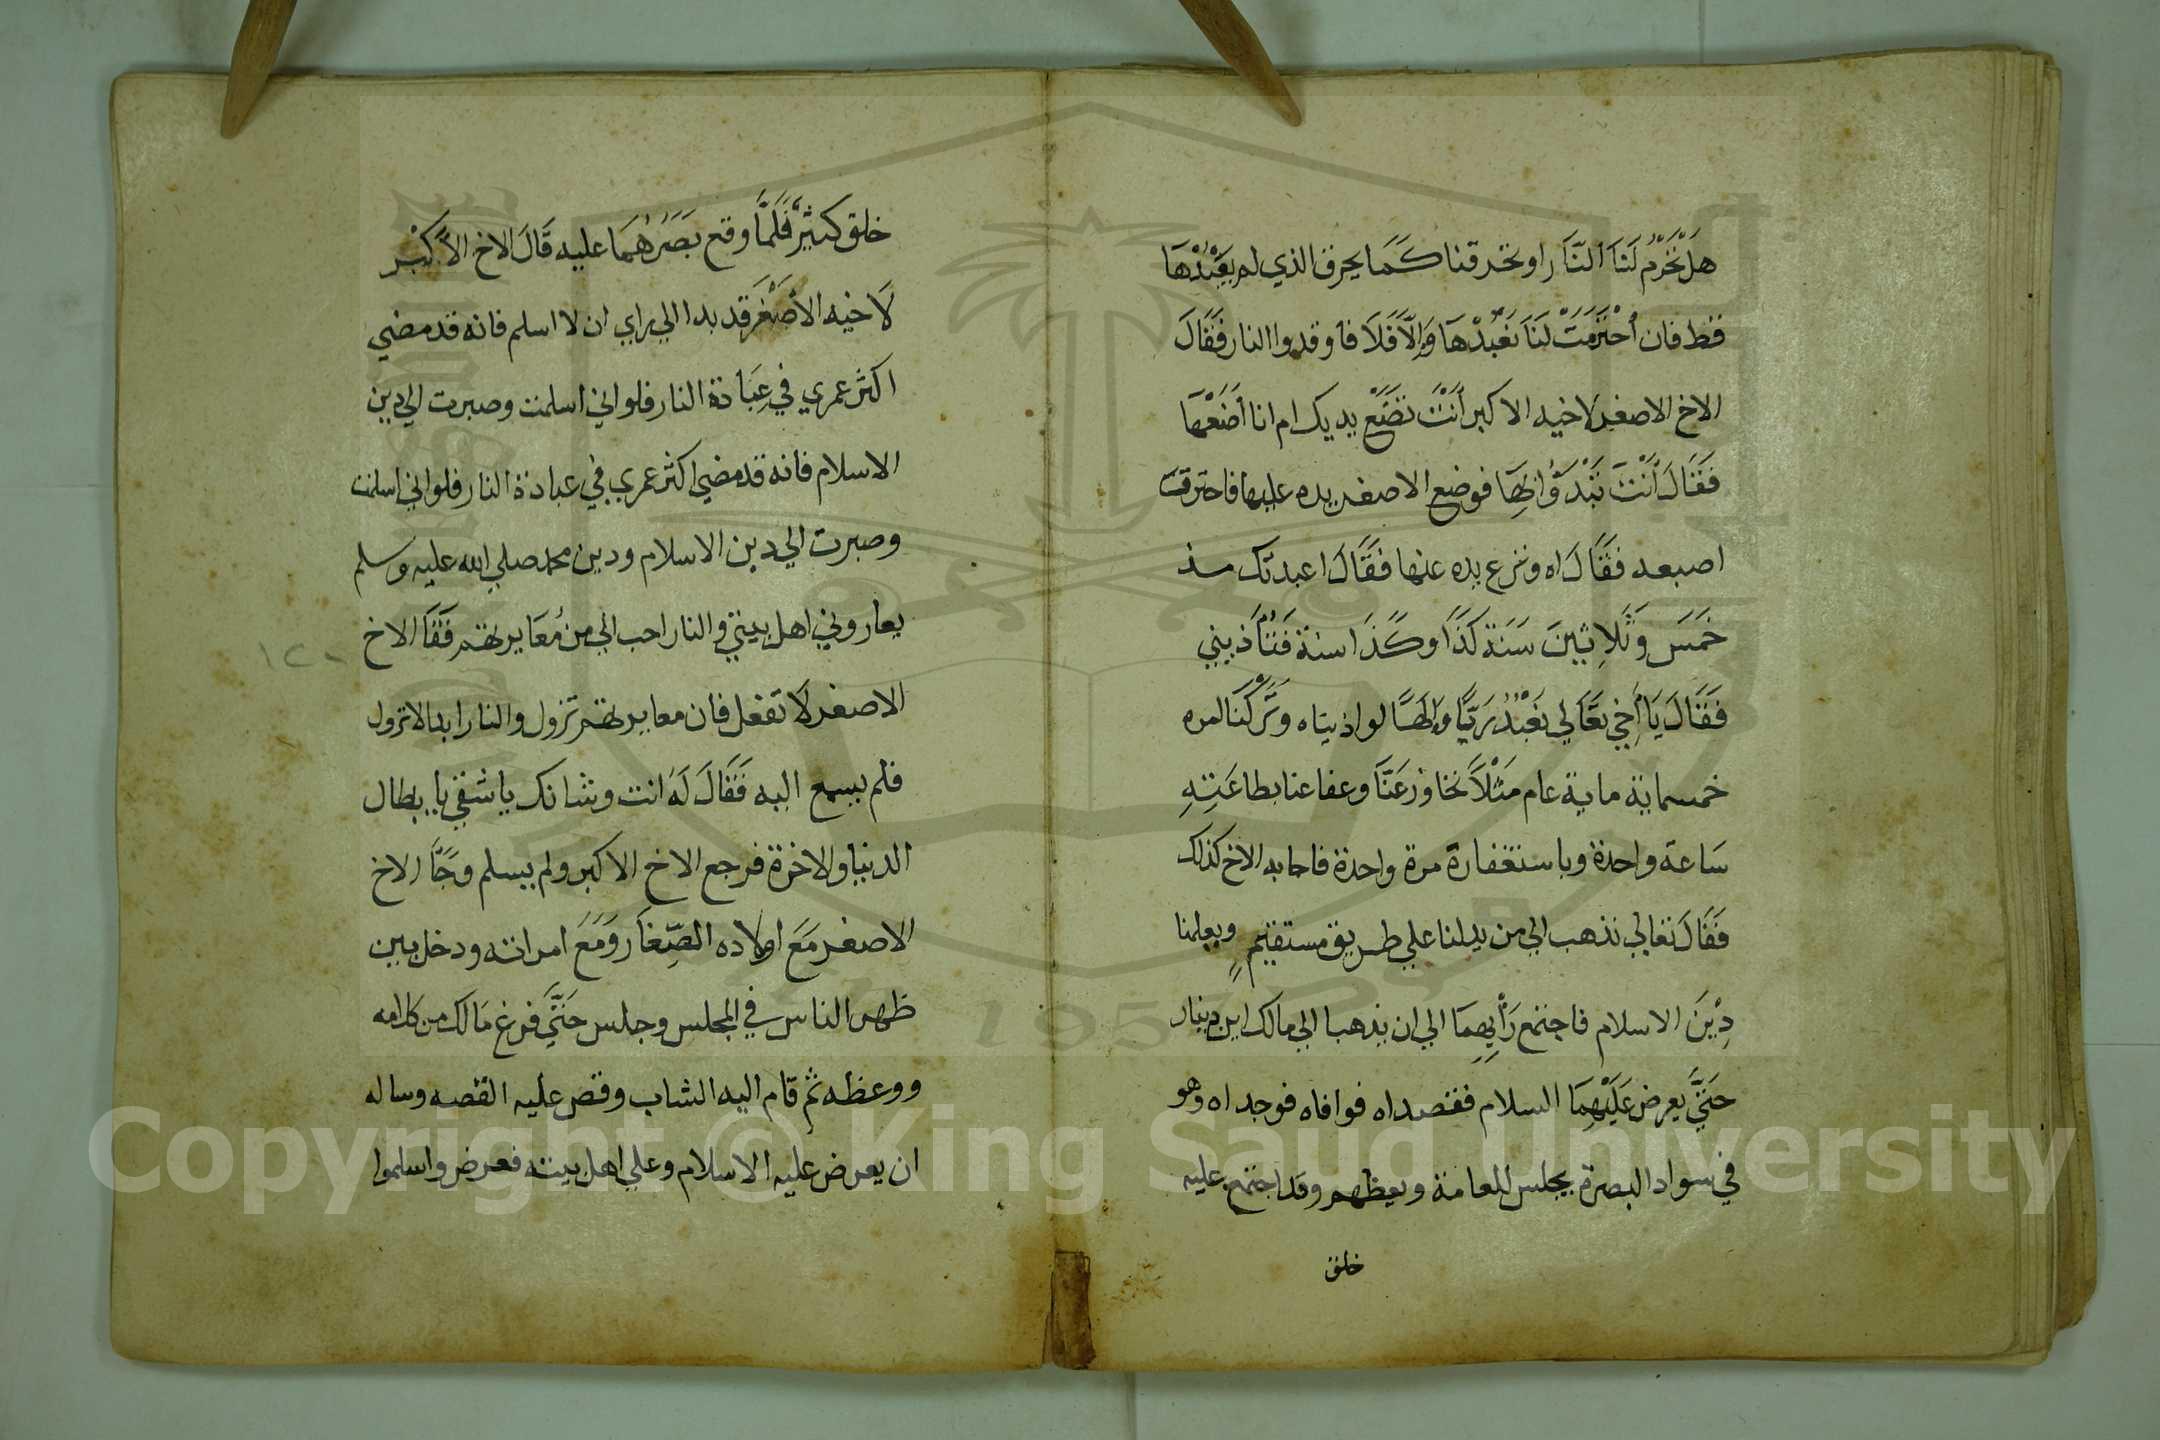 هَلْ تَحْرُمُ لَنَا النَّارُ او تحرقنا كَمَا يحرق الذي لم يَعْبُدْهَا
قط فان احْتَرَمَتْ لَنَا نَعْبُدْهَا وَاِلَّا فَلَا فاوقدوا النار فَقَالَ
الاخ الاصغر لاخيه الاكبر أَنْتَ تَضَعُ يديك ام انا أَضَعُهَا
فَقَالَ أَنْتَ تَبْدَؤُا لِهَا فوضع الاصغر يده عليها فاحترقت
اصبعه فَقَالَ اه ونزع يده عنها فَقَالَ اعبدتك منذ
خَمَسَ وَثَلاثِينَ سَنَة كَذَا وكَذَا سنة فَتُأْذيني
فَقَالَ يَا أَخِي تَعَالي نَعْبُدُ رَبًّا وَالَهًا لو اذيناه وَتَرَكْنَا امره
خمسماية ماية عام مَثْلاً تجاوزعَنَّا وعفا عنا بطاعَتِهِ
سَاعة واحدة وباستغفارة مرة واحدة فاجابه الاخ كذلك
فَقَالَ تعالي نذهب الي من يدلنا علي طريق مستقيمٍ ويعلمنا
دِيْنَ الاسلام فاجتمع رَأْيِهِمَا الي ان يذهبا الي مالك ابن دينار
حَتَّي يعرض عَلَيْهِمَا السلام فقصداه فوافاه فوجداه وهو
في سواد البصرة يجلس للعامة ويعظهم وقد اجتمع عليه
خلق
خلق كثيرٌ فَلَمَّا وقع بَصَرُهُمَا عليه قَالَ الاخ الاَكْبَر
لَاخيه الاصْغَر قد بدا الي راي ان لا اسلم فانه قد مضي
اكثر عمري في عِبَادة النار فلو اني اسلمت وصبرت الي دين
الاسلام فانه قد مضي اكثر عمري في عبادة النار فلو اني اسلمت
وصبرت الي دين الاسلام ودين محمد صلي الله عليه وسلم
يعاروني اهل بيتي والنار احب الي من مُعَايرتهم فَقَا الاخ
الاصغر لَا تفعل فان معايرتهم تزول والنار ابدا لا تزول
فلم يسمع اليه فَقَالَ لَهُ انت وشانك يا شقي يا بطال
الدنيا والاخرة فرجع الاخ الاكبر ولم يسلم وجَّا الاخ
الاصغر مَعَ اولاده الصِّغَار وَمَعَ امراته ودخل بين
ظهر الناس في المجلس وجلس حَتَّي فرغ مَالك من كلامه
ووعظه ثم قام اليه الشاب وقص عليه القصه وساله
ان يعرض عليه الاسلام وعلي اهل بيته فعرض واسلموا
Copyright © King Saud University
195